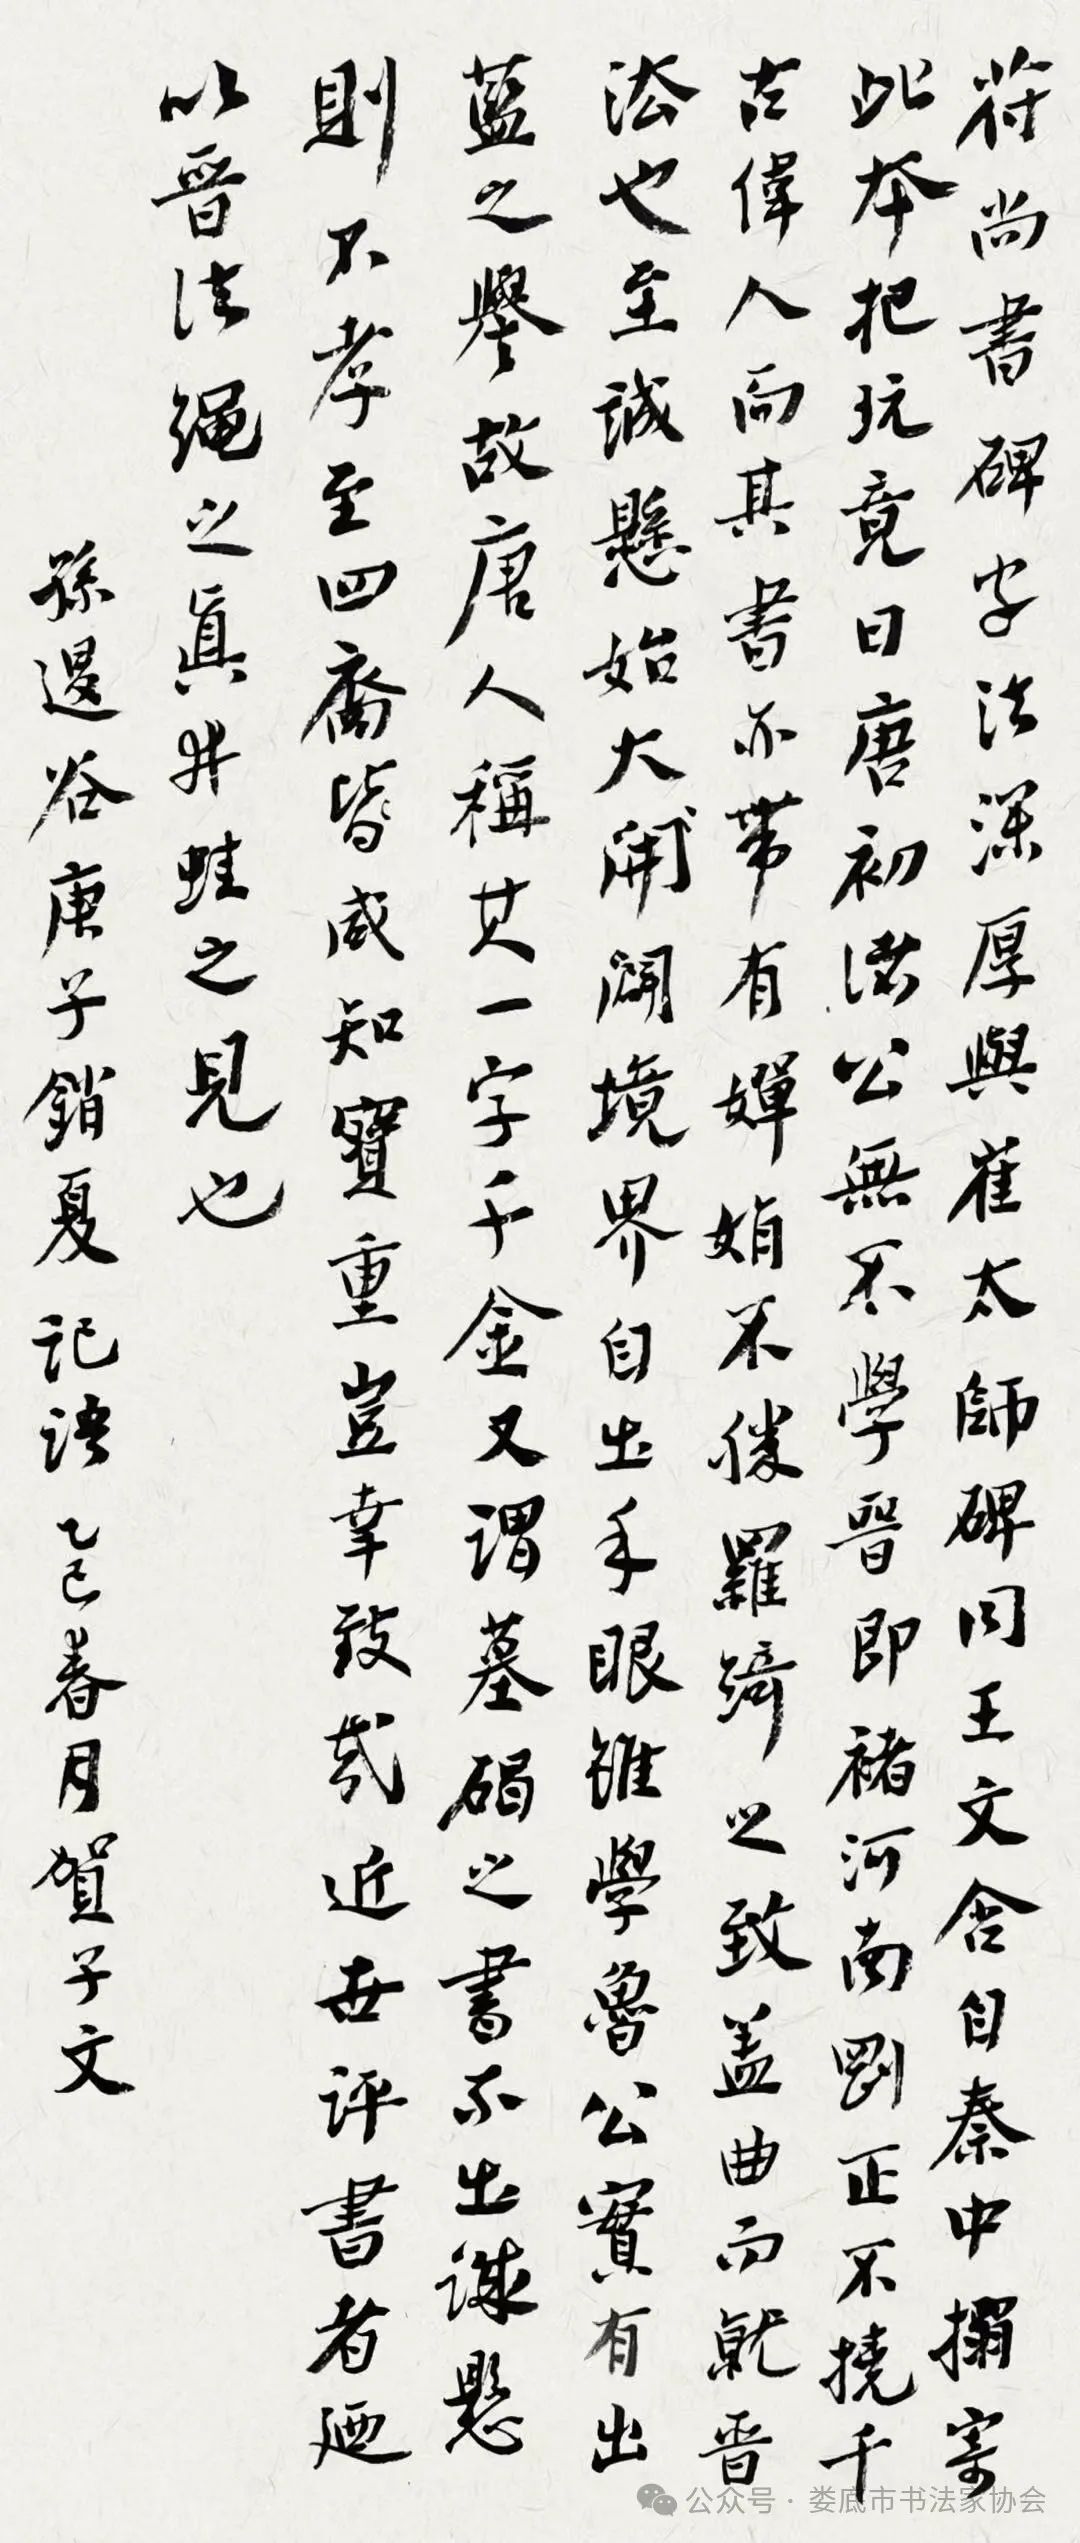 苻尚書碑字法深厚與崔太師碑同王文含自秦中搨寄
此本把玩竟日唐初諸公無不學晉即褚河南剛正不撓千
古偉人而其書亦帶有嬋娟不勝羅綺之致盖曲而就晉
法也至誠懸始大開闢境界自出手眼雖學魯公實有出
藍之譽故唐人稱其一字千金又謂墓碣之書不出誠懸
則不孝至四裔皆咸知寶重豈幸致哉近世評書者廼
以晉法繩之真井蛙之見也
孫退谷庚子銷夏記語乙巳春月賀子文
公众号·娄底市书法家协会